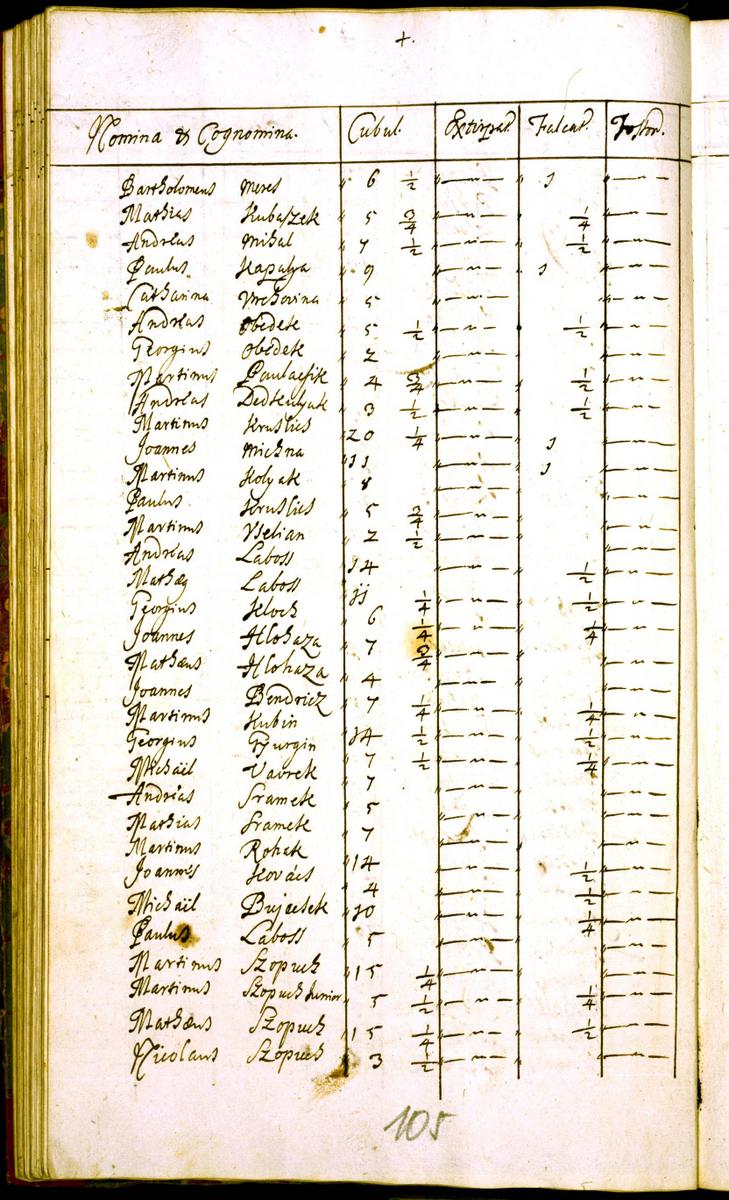 +.
Nomina & Cognomina. Cubul. Extirpat. Falcat. Fossor.
Bartholomeus Meres " 6 ½ " — " — " 1 " — " —
Mathias Kubaszek " 5 ¾ " — " — " ¼ " — " —
Andreas Mihal " 7 ½ " — " — " ½ " — " —
Paulus Kapalya " 9 " — " — " 1 " — " —
Catharina Vrchovina " 5 " — " — " " — " —
Andreas Obedek " 5 ½ " — " — " ½ " — " —
Georgius Obedek " 2 " — " — " " — " —
Martinus " 4 ¾ " — " — " ½ " — " —
Andreas " 3 ½ " — " — " ½ " — " —
Martinus Kruslics " 20 ¼ " — " — " 1 " — " —
Joannes Michna " 11 " — " — " 1 " — " —
Martinus Holyak " 8 " — " — " " — " —
Paulus Kruslics " 5 ¾ " — " — " " — " —
Martinus Vselian " 2 ½ " — " — " " — " —
Andreas Laboss " 14 " — " — " ½ " — " —
Mathæg Laboss " 11 ¼ " — " — " ½ " — " —
Georgius Kloch " 6 ¼ " — " — " ¼ " — " —
Joannes Hlohaza " 7 ¾ " — " — " " — " —
Mathæus Hlohaza " 4 " — " — " " — " —
Joannes Bendricz " 7 ¼ " — " — " ¼ " — " —
Martinus Kubin " 14 ½ " — " — " ½ " — " —
Georgius Gyurgin " 7 ½ " — " — " ¼ " — " —
Michaël Vavrek " 7 " — " — " " — " —
Andreas Sramek " 5 " — " — " " — " —
Mathias Sramek " 7 " — " — " " — " —
Martinus Rohak " 14 " — " — " ½ " — " —
Joannes Kovács " 4 " — " — " ½ " — " —
Michaël Bujacsek " 10 " — " — " ¼ " — " —
Paulus Laboss " 5 " — " — " " — " —
Martinus Szopuch " 15 ¼ " — " — " " — " —
Martinus Szopuch Junior " 5 ½ " — " — " ¼ " — " —
Mathæus Szopuch " 15 ¼ " — " — " ½ " — " —
Nicolaus Szopuch " 3 ½ " — " — " " — " —
105